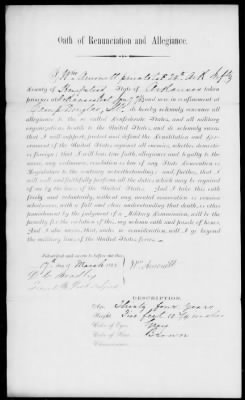 Oath of Renunciation and Allegiance.
I, Wm
County of Hempstead State of Arkansas taken
prisoner at Arkansas Post Jany 11/63 and now in confinement at
Camp Douglas, Ill. do hereby solemnly renounce all
allegiance to the so called Confederate States, and all military
organizations hostile to the United States, and do solemnly swear
that I will support, protect and defend the Constitution and Gov-
ernment of the United States against all enemies, whether domestic
or foreign; that I will bear true faith, allegiance and loyalty to the
same, any ordinance, resolution or law of any State Convention or
Legislature to the contrary notwithstanding; and further, that I
will well and faithfully perform all the duties which may be required
of me by the laws of the United States. And I take this oath
freely and voluntarily, without any mental reservation or evasion
whatsoever, with a full and clear understanding that death, or other
punishment by the judgment of a Military Commission, will be the
penalty for the violation of this my solemn oath and parole of honor.
And I also swear, that under no consideration will I go beyond
the military lines of the United States forces.
Subscribed and sworn to before me this
17th day of March 186
DESCRIPTION.
Age, Thirty four years
Height, Five feet 10
Color of Eyes, Grey
Color of Hair, Brown